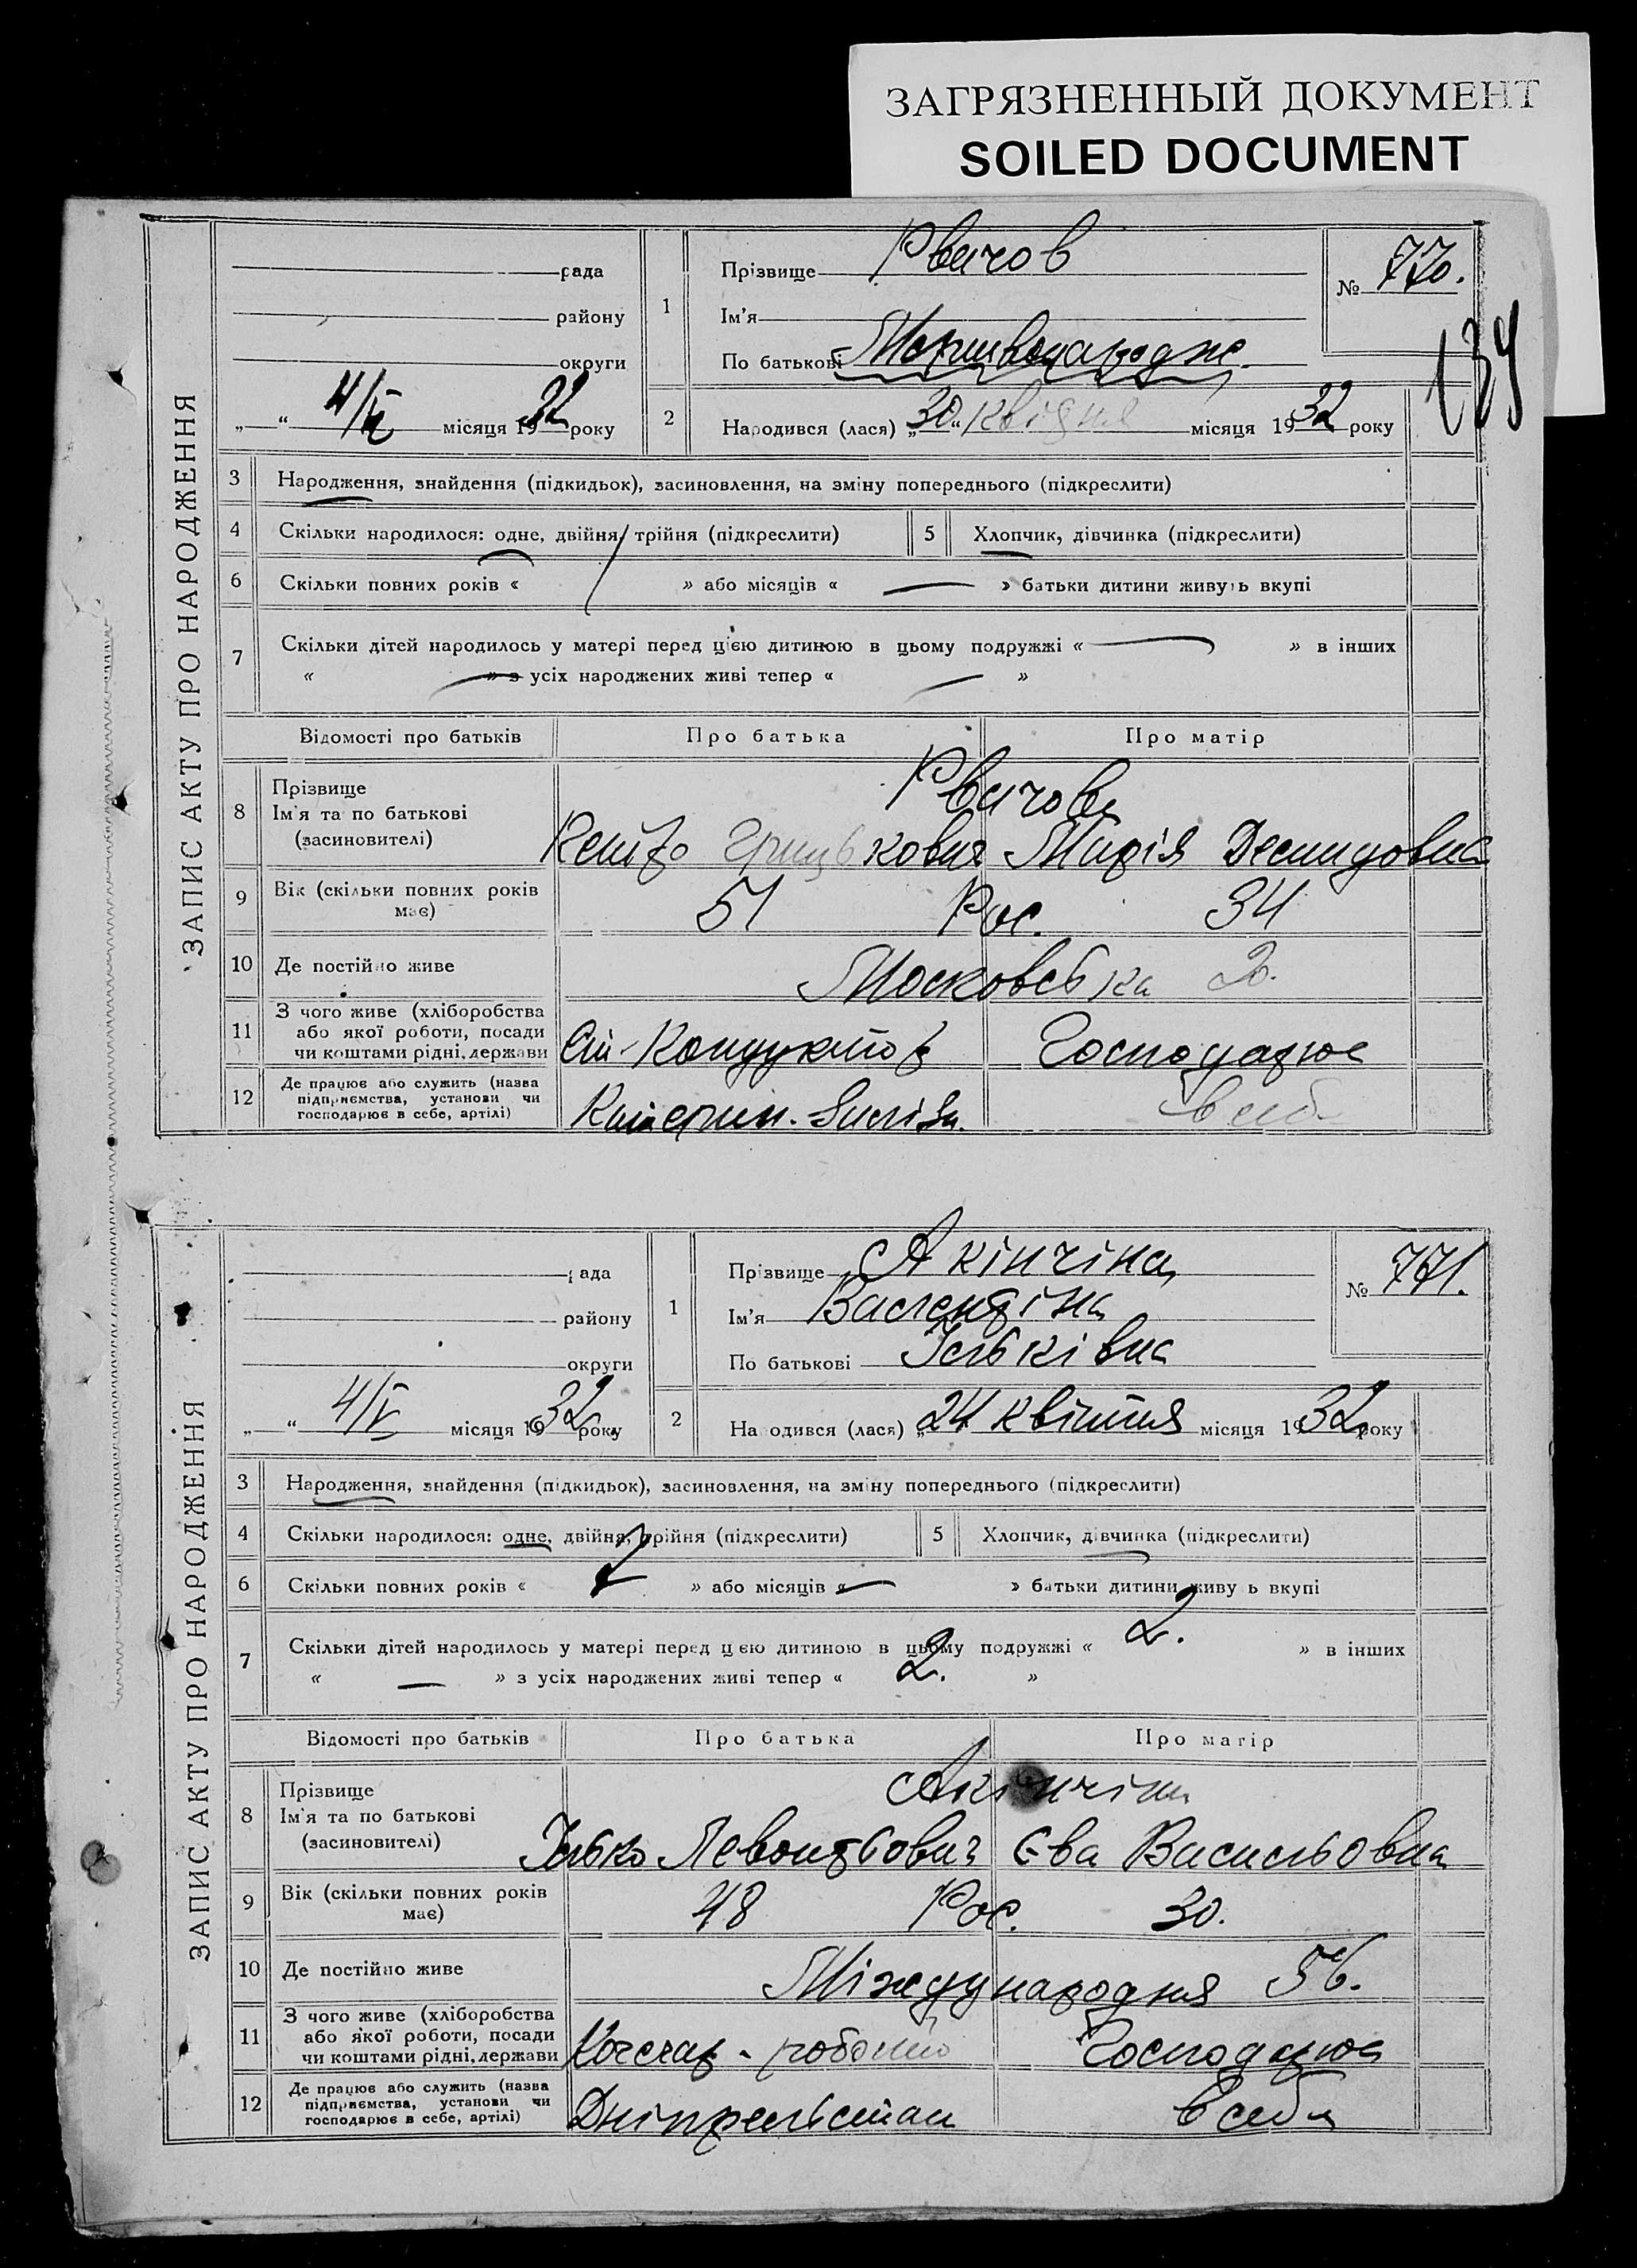 ЗАГРЯЗНЕННЫЙ ДОКУМЕНТ
SOILED DOCUMENT
ЗАПИС АКТУ ПРО НАРОДЖЕННЯ
рада
району
округи
„ “ 4/V місяця 1932 року
1
Прізвище Рвачов
Ім'я
По батькові Мертвонародж.
№ 770.
139
2 Народився (лася) „30“ квітня місяця 1932 року
3 Народження, знайдення (підкидьок), засиновлення, на зміну попереднього (підкреслити)
4 Скільки народилося: одне, двійня, трійня (підкреслити) 5 Хлопчик, дівчинка (підкреслити)
6 Скільки повних років « » або місяців « — » батьки дитини живуть вкупі
7 Скільки дітей народилось у матері перед цією дитиною в цьому подружжі « — » в інших
« — » з усіх народжених живі тепер « — »
Відомості про батьків Про батька Про матір
8 Прізвище
Ім'я та по батькові
(засиновителі)
Рвачови
Грицькович Марія Демидовна
9 Вік (скільки повних років має)
51 Рос. 34
10 Де постійно живе
Московська 20.
11 З чого живе (хліборобства
або якої роботи, посади
чи коштами рідні, держави
Кондуктор Господарює
12 Де працює або служить (назва
підприємства, установи чи
господарює в себе, артілі)
Катерин. в себе
ЗАПИС АКТУ ПРО НАРОДЖЕННЯ
рада
району
округи
„ “ 4/V місяця 1932 року
1
Прізвище Акінчіна
Ім'я Валентіна
По батькові Ільківна
№ 771.
2 Народився (лася) „24 квітня місяця 1932 року
3 Народження, знайдення (підкидьок), засиновлення, на зміну попереднього (підкреслити)
4 Скільки народилося: одне, двійня, трійня (підкреслити) 5 Хлопчик, дівчинка (підкреслити)
6 Скільки повних років « » або місяців « — » батьки дитини живуть вкупі
7 Скільки дітей народилось у матері перед цією дитиною в цьому подружжі « 2. » в інших
« — » з усіх народжених живі тепер « 2. »
Відомості про батьків Про батька Про матір
8 Прізвище
Ім'я та по батькові
(засиновителі)
Акінчіни
Ілько Левонтьович Єва Васильовна
9 Вік (скільки повних років має)
48 Рос. 30.
10 Де постійно живе
Міждународня 56.
11 З чого живе (хліборобства
або якої роботи, посади
чи коштами рідні, держави
Кочегар - Господарює
12 Де працює або служить (назва
підприємства, установи чи
господарює в себе, артілі)
Дніпрельстан в себе